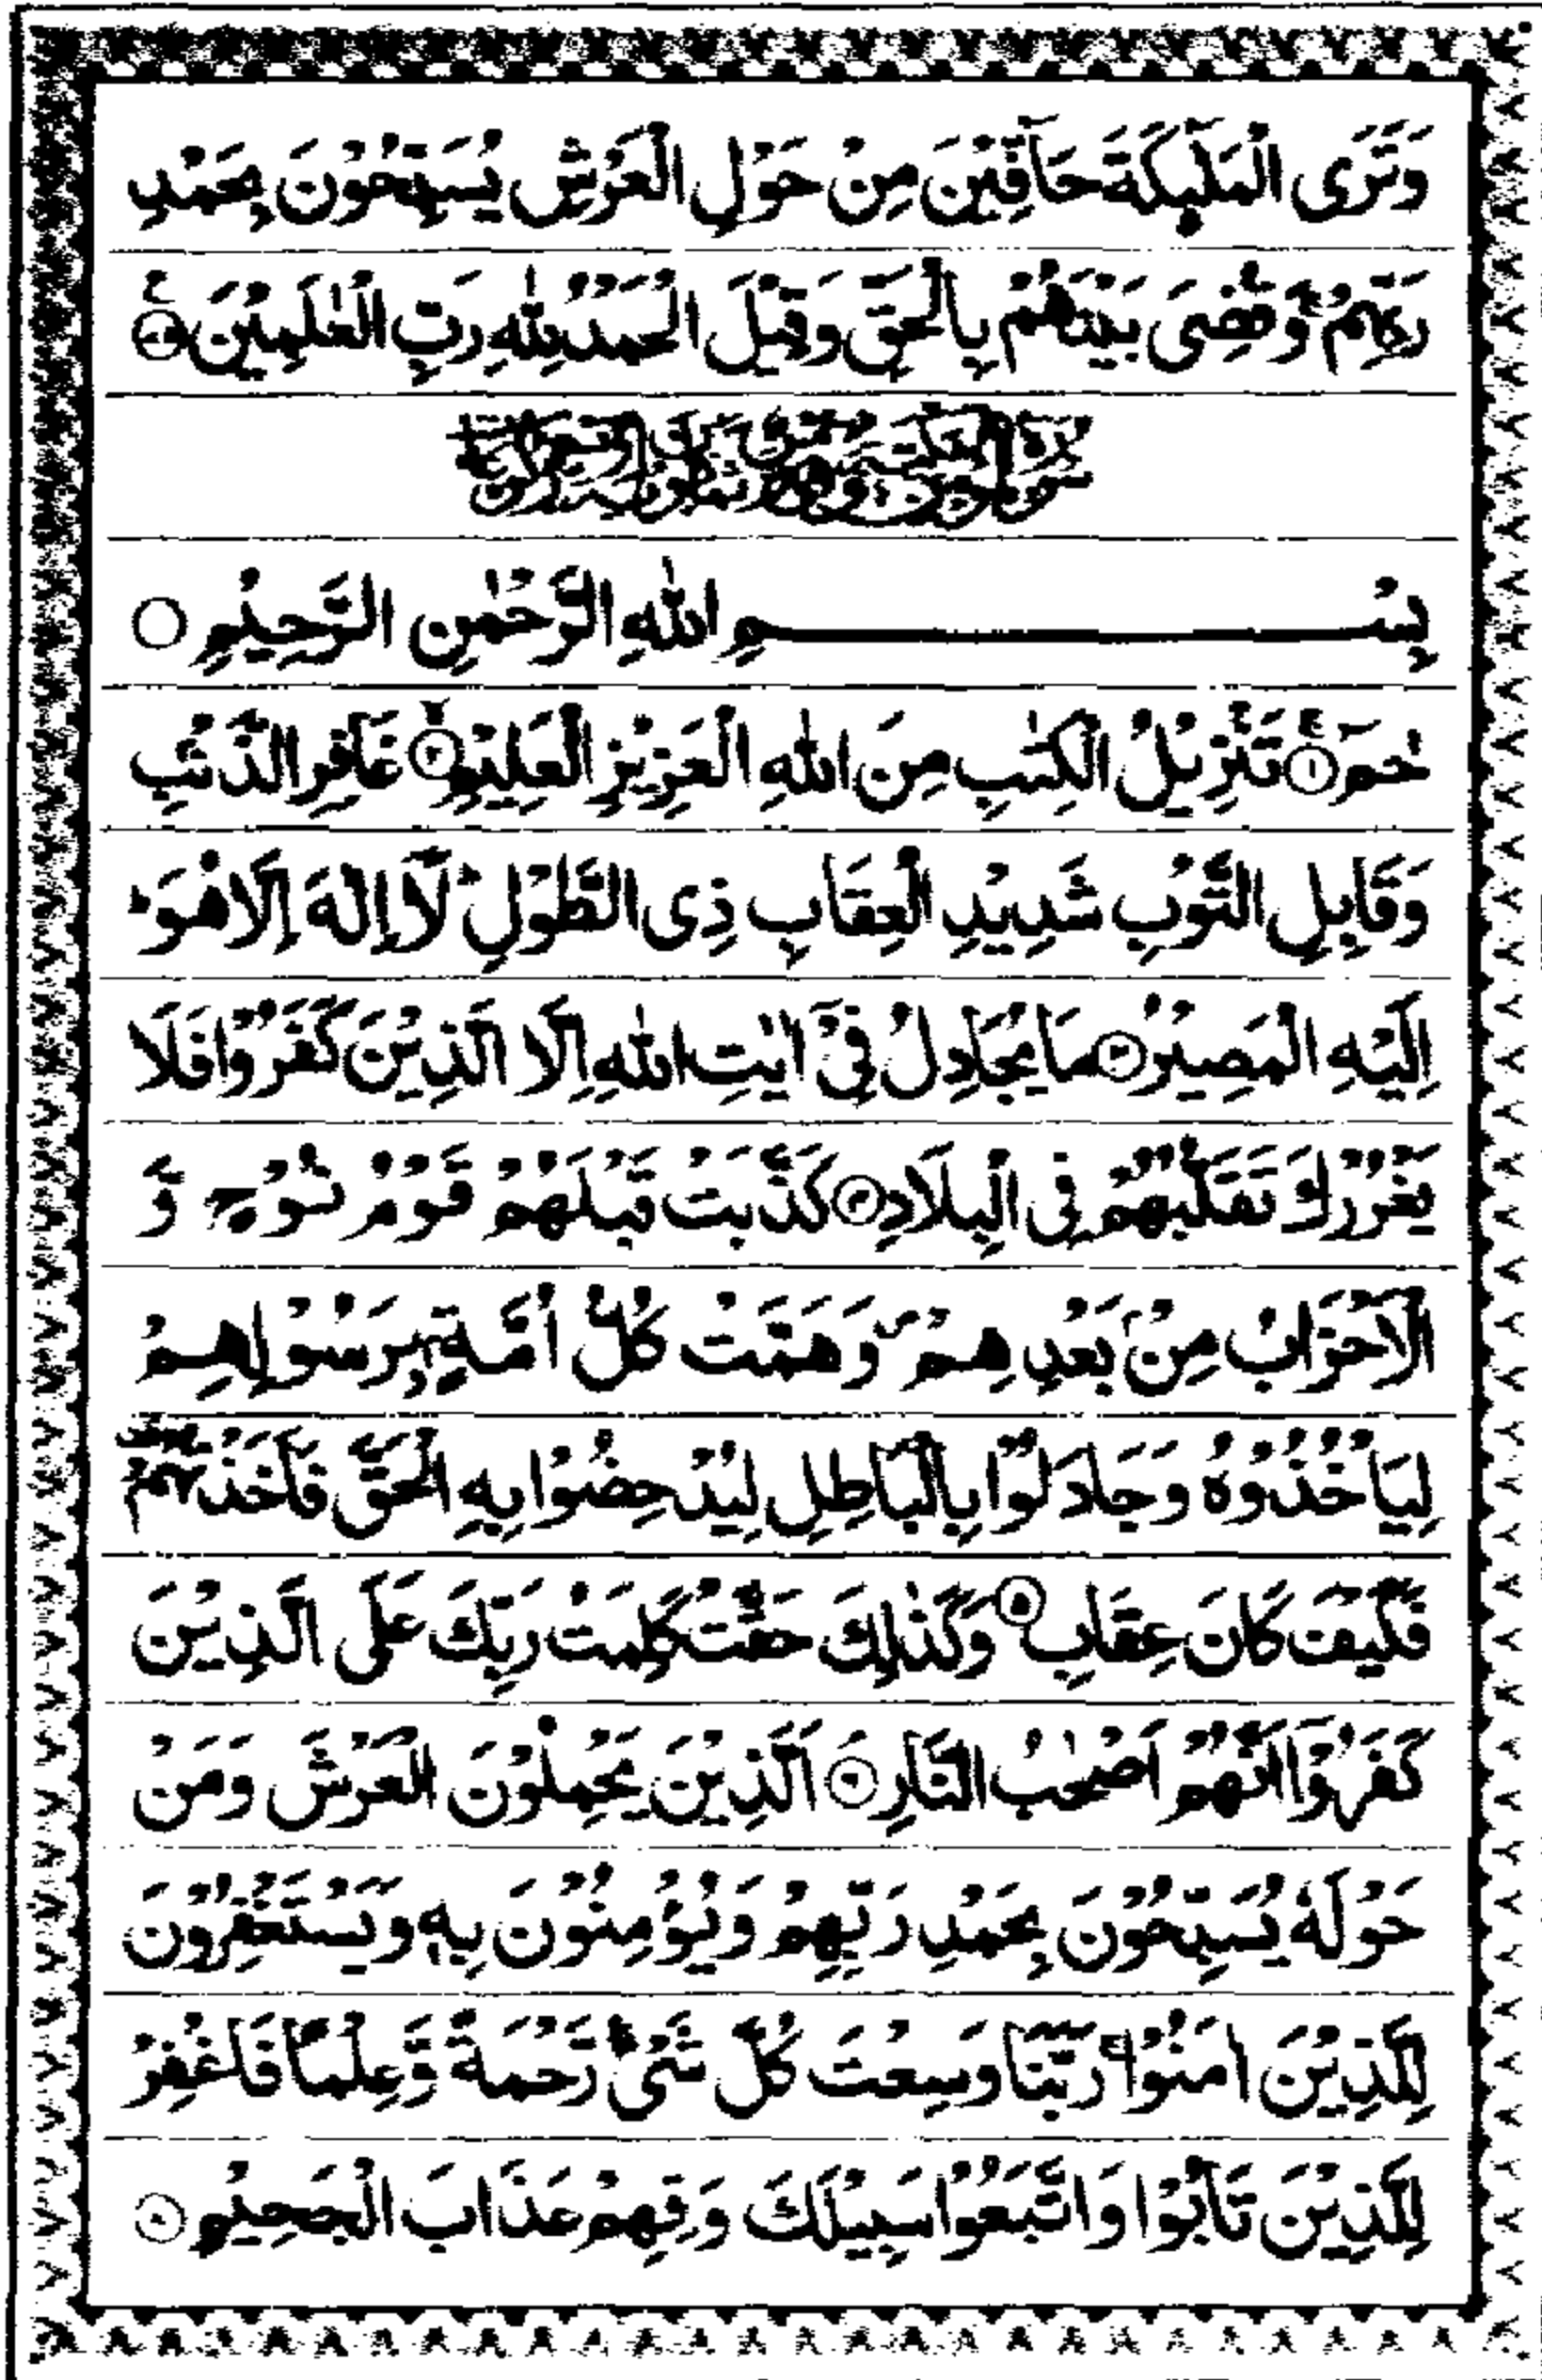 وَتَرَى الْمَلٰٓئِكَةَ حَآفِّيْنَ مِنْ حَوْلِ الْعَرْشِ يُسَبِّحُوْنَ بِحَمْدِ
رَبِّهِمْ ۚ وَقُضِيَ بَيْنَهُمْ بِالْحَقِّ وَقِيْلَ الْحَمْدُ لِلّٰهِ رَبِّ الْعٰلَمِيْنَ
بِسْــــــــمِ اللّٰهِ الرَّحْمٰنِ الرَّحِيْمِ ○
حٰمٓ ۚ ① تَنْزِيْلُ الْكِتٰبِ مِنَ اللّٰهِ الْعَزِيْزِ الْعَلِيْمِ ۙ ② غَافِرِ الذَّنْۢبِ
وَقَابِلِ التَّوْبِ شَدِيْدِ الْعِقَابِ ذِى الطَّوْلِ ؕ لَآ اِلٰهَ اِلَّا هُوَ ؕ
اِلَيْهِ الْمَصِيْرُ ③ مَا يُجَادِلُ فِيْٓ اٰيٰتِ اللّٰهِ اِلَّا الَّذِيْنَ كَفَرُوْا فَلَا
يَغْرُرْكَ تَقَلُّبُهُمْ فِى الْبِلَادِ ④ كَذَّبَتْ قَبْلَهُمْ قَوْمُ نُوْحٍ وَّ
الْاَحْزَابُ مِنْۢ بَعْدِهِمْ ۪ وَهَمَّتْ كُلُّ اُمَّةٍۭ بِرَسُوْلِهِمْ
لِيَاْخُذُوْهُ وَجَادَلُوْا بِالْبَاطِلِ لِيُدْحِضُوْا بِهِ الْحَقَّ فَاَخَذْتُهُمْ
فَكَيْفَ كَانَ عِقَابِ ⑤ وَكَذٰلِكَ حَقَّتْ كَلِمَتُ رَبِّكَ عَلَى الَّذِيْنَ
كَفَرُوْٓا اَنَّهُمْ اَصْحٰبُ النَّارِ ⑥ اَلَّذِيْنَ يَحْمِلُوْنَ الْعَرْشَ وَمَنْ
حَوْلَهٗ يُسَبِّحُوْنَ بِحَمْدِ رَبِّهِمْ وَيُؤْمِنُوْنَ بِهٖ وَيَسْتَغْفِرُوْنَ
لِلَّذِيْنَ اٰمَنُوْا ۚ رَبَّنَا وَسِعْتَ كُلَّ شَيْءٍ رَّحْمَةً وَّعِلْمًا فَاغْفِرْ
لِلَّذِيْنَ تَابُوْا وَاتَّبَعُوْا سَبِيْلَكَ وَقِهِمْ عَذَابَ الْجَحِيْمِ